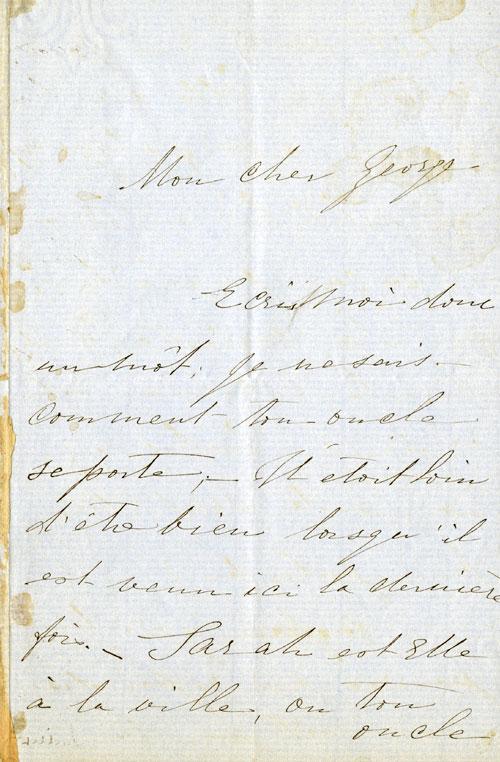 Mon cher George -
Ecris moi donc
un môt; je ne sais -
comment ton oncle
se porte; - Il étoit loin
d'être bien lorsqu'il
est venu ici la dernière
fois. - Sarah est Elle
à la ville, ou ton
oncle